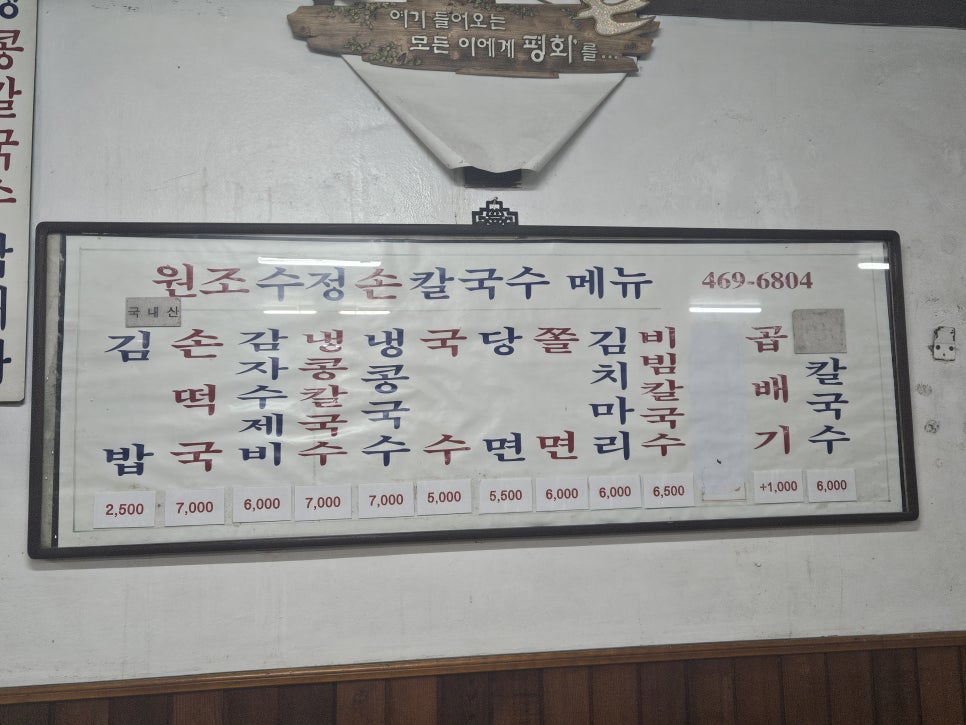 여기 들어오는
모든 이에게 평화를...
콩칼국수
원조수정손칼국수 메뉴 469-6804
국내산
김밥 2,500
손떡국 7,000
감자수제비 6,000
냉콩칼국수 7,000
냉콩국수 7,000
국수 5,000
당면 5,500
쫄면 6,000
김치마리 6,000
비빔칼국수 6,500
곱배기 +1,000
칼국수 6,000